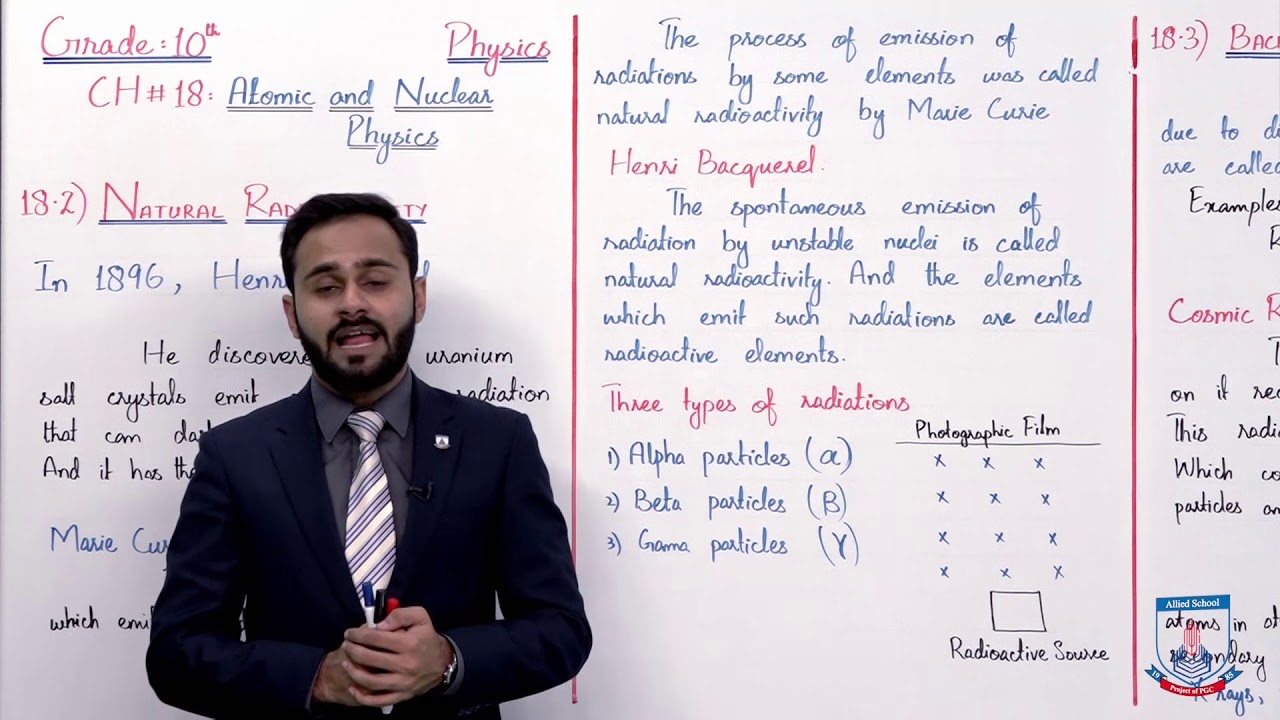 Grade: 10th Physics
CH # 18: Atomic and Nuclear
Physics
18.2) NATURAL
In 1896,
He
uranium
salt crystals emit radiation
that can
And it has
Marie
which
The process of emission of
radiations by some elements was called
natural radioactivity by Marie Curie
Henri Bacquerel.
The spontaneous emission of
radiation by unstable nuclei is called
natural radioactivity. And the elements
which emit such radiations are called
radioactive elements.
Three types of radiations
1) Alpha particles (α)
2) Beta particles (β)
3) Gama particles (γ)
Photographic Film
x x x
x x x
x x x
x x x
Radioactive Source
18.3)
due to
are called
Examples
Cosmic
on it
This
Which
particles
atoms in
rays,
Allied School
19 85
Project of PGC